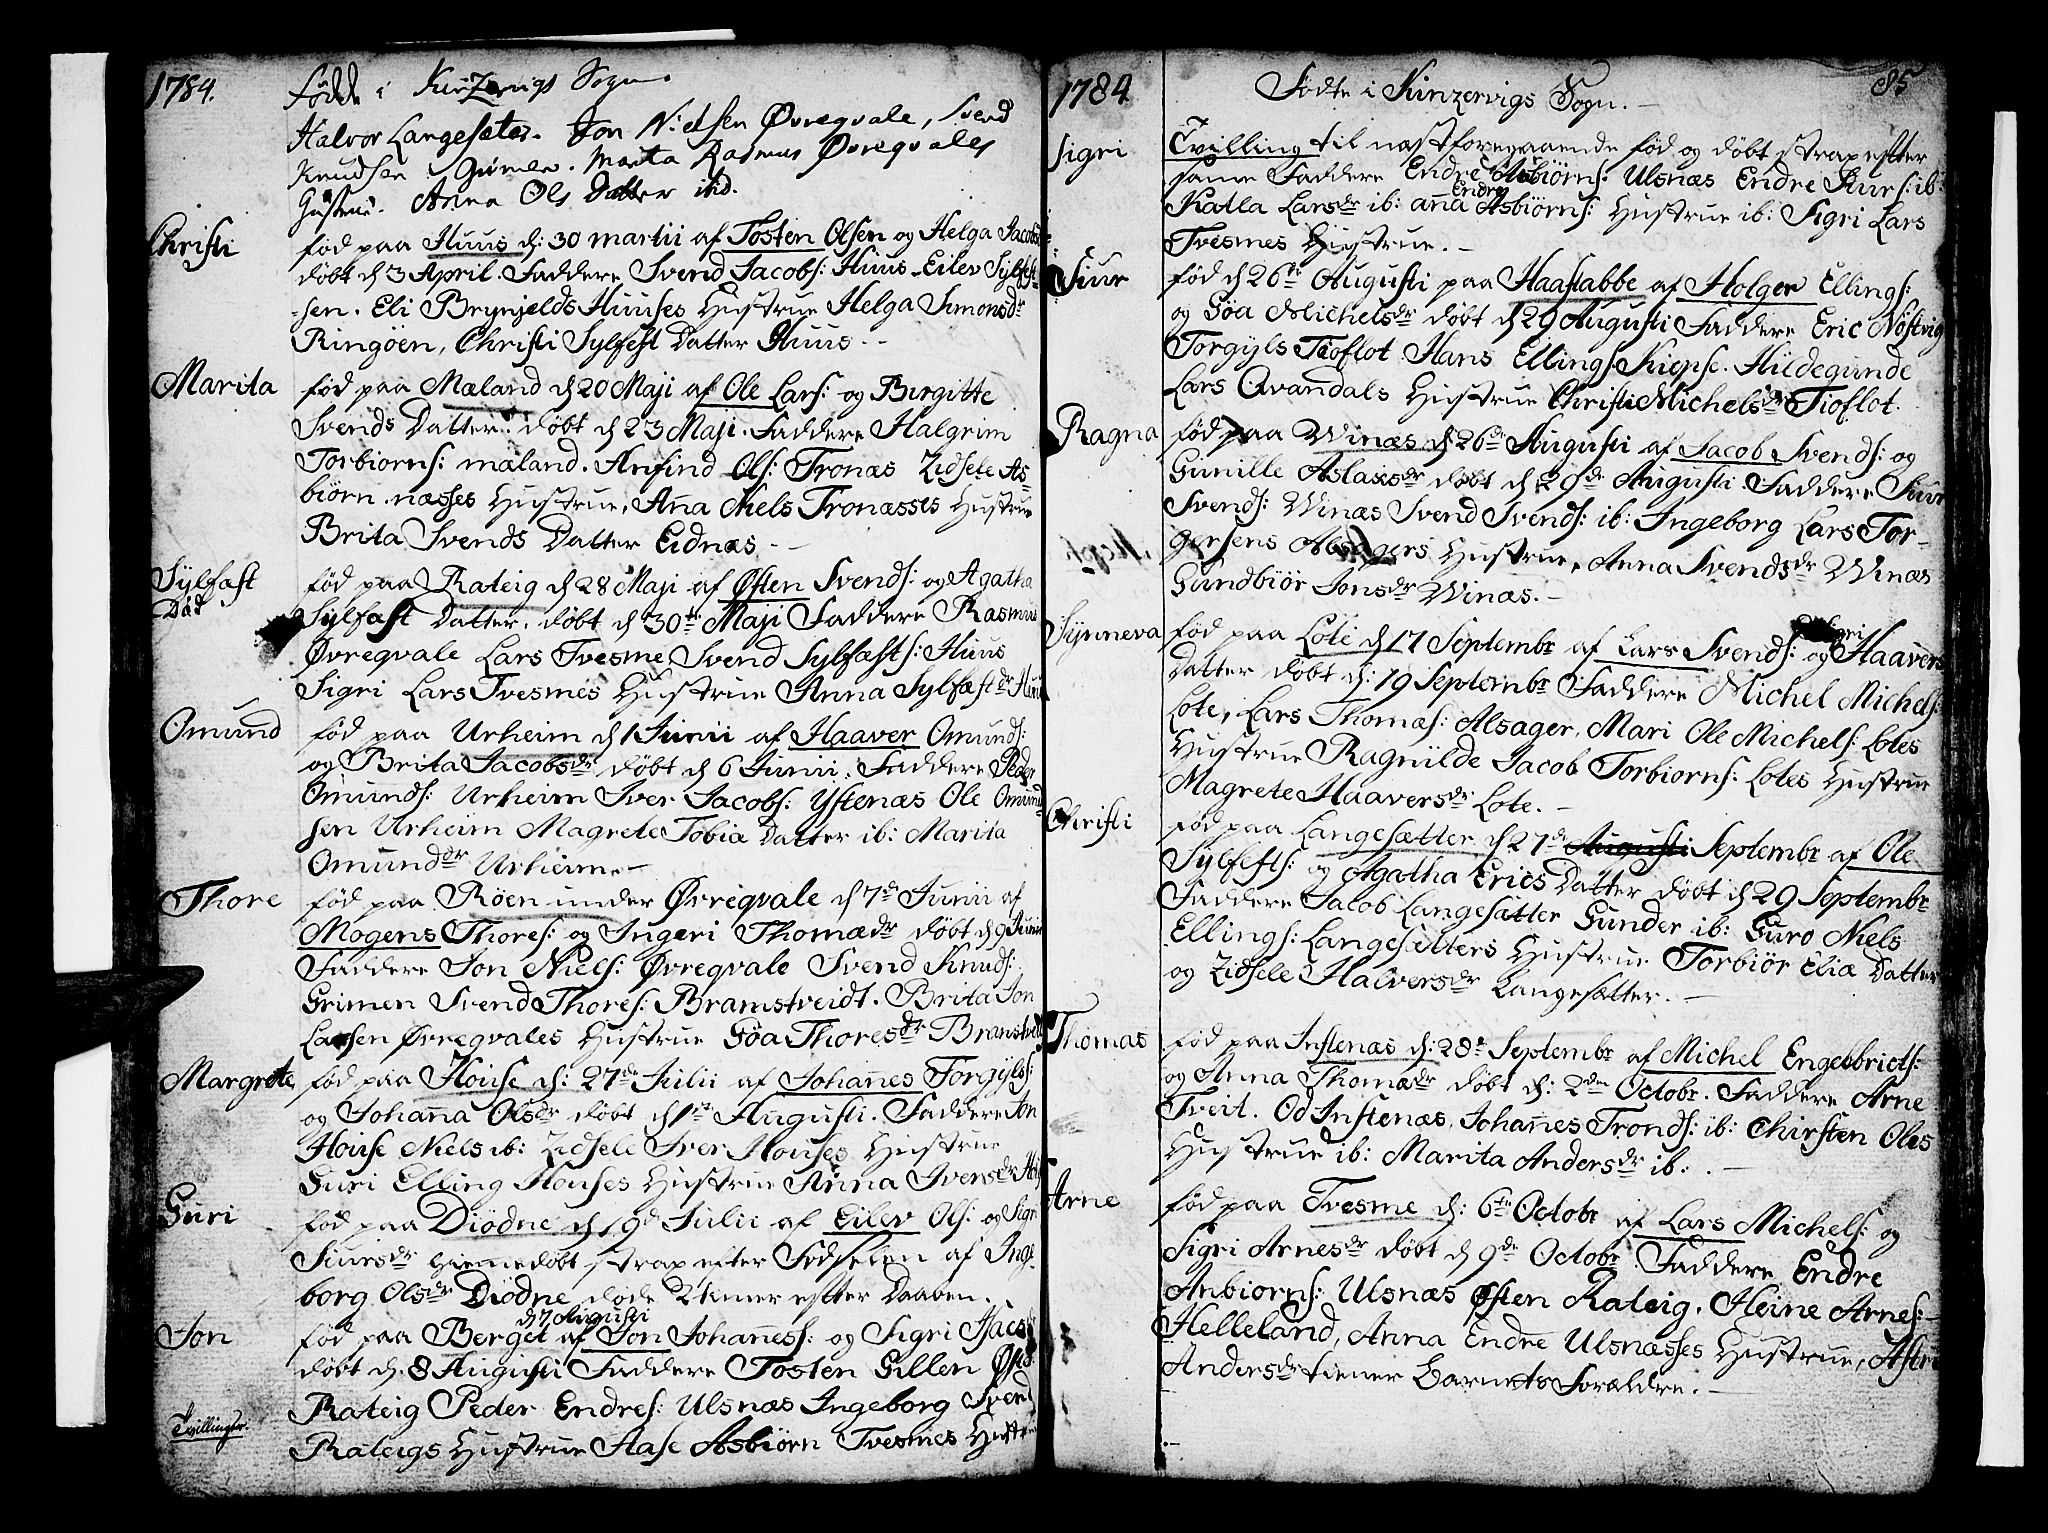 1784. Fødde i Kinzervigs Sogn.
Halvor Langesæter. Jon Nielsen Øvreqvale, Svend
Knudsen Grimen. Marita Rasmus Øvreqvales
Hustrue. Anna Ols Datter ibd.
Christi fød paa Huus d: 30 martii af Tosten Olsen og Helga Jacobs
døbt d 3 April. Faddere Svend Jacobs: Huus Eilev Sylfest-
-sen. Eli Brynjelds Huuses Hustrue Helga Simonsdr
Ringøen, Christi Sylfest Datter Huus.-
Marita fød paa Mæland d 20 Maji af Ole Lars: og Birgitte
Svends Datter. døbt d 23 Maji. Faddere Halgrim
Torbiorns: mæland. Anfind Ols: Tronæs Zidsele As
biørn næsses Hustrue, Anna Niels Tronæsses Hustrue
Brita Svends Datter Eidnæs -
Sylfæst fød paa Rateig d 28 Maji af Østen Svends: og Agatha
Død Sylfæst Datter. døbt d 30te Maji Faddere Rasmus
Øvreqvale Lars Tvesme Svend Sylfæsts: Huus
Sigri Lars Tvesmes Hustrue Anna Sylfæstdr Huus
Omund fød paa Urheim d 1 Junii af Haaver Omunds:
og Brita Jacobsdr døbt d 6 Junii. Faddere Peder
Omunds: Urheim Iver Jacobs: Ystenæs Ole Omund
sen Urheim Magrete Tobiæ Datter ib: Marita
Omunddr Urheim.-
Thore fød paa Røen under Øvreqvale d 7de Junii af
Mogens Thores: og Ingeri Thomædr døbt d 9 Junii
Faddere Jon Niels: Øvreqvale Svend Knuds:
Grimen Svend Thores: Bramstveidt. Brita Jon
Larsen Øvreqvales Hustrue Göa Thoresdr Bramstveit
Margrete fød paa House d: 27de Julii af Johannes Torgyls:
og Johanna Olsdr døbt d 1te Augusti. Faddere Jon
House Niels ib: Zidsele Iver Houses Hustrue
Guri Elling Houses Hustrue Anna Iversdr
Guri fød paa Diödne d 19d Julii af Eilev Ols: og Sigri
Siursdr hiemedøbt strax efter Fødselen af Inge
borg Olsdr Diödne døde 2 timer efter Daaben.
d 7 Augusti
Jon fød paa Berget af Jon Johannes: og Sigri Isacs
døbt d. 8 Augusti Faddere Tosten Gillen Østen
Rateig Peder Endres: Ulsnæs Ingeborg Svend
Tvillinger. Rateigs Hustrue Aase Asbiørn Tvesmes Hustrue
1784 Fødte i Kinzervigs Sogn.- 85
Sigri Tvilling til næstforegaaende fød og døbt strax efter
same Faddere Endre Asbiörns: Ulsnæs Endre Siurs: ib:
Katla Larsdr ib: anna Endre Asbiörns: Hustrue ib: Sigri Lars
Tvesmes Hustrue.-
Siur fød d 26de Augusti paa Haastabbe af Holger Ellings:
og Göa Michelsdr døbt d 29 Augusti Faddere Eric Nöstvig
Torgyls Tioflot. Hans Ellings: Kiepse. Hildegunde
Lars Qvandals Hustrue Christi Michelsdr Tioflot.
Ragna fød paa Winæs d 26de Augusti af Jacob Svends: og
Gunille Aslaxsdr døbt d 29de Augusti. Faddere Siur
Svends: Winæs Svend Svends: ib: Ingeborg Lars Tor-
gersens Alsagers Hustrue, Anna Svendsdr Winæs
Gundbiör Jonsdr Winæs.-
Synneva fød paa Lote d 17 Septembr af Lars Svends: og Sigri Haavers
Datter døbt d: 19 Septembr Faddere Michel Michels:
Lote, Lars Thomæs: Alsager, Mari Ole Michels: Lotes
Hustrue Ragnilde Jacob Torbiorns: Lotes Hustrue
Magrete Haaversdr Lote.-
Christi fød paa Langesætter d 27de Augusti Septembr af Ole
Sylfests: og Agatha Erics Datter døbt d 29 Septembr
Faddere Jacob Langesätter Gunder ib: Guro Niels
Ellings: Langesetters Hustrue Torbiör Eliæ Datter
og Zidsele Halversdr Langesætter.-
Thomas fød paa Instenæs d: 28de Septembr af Michel Engelbricts:
og Anna Thomædr döbt d: 2den Octobr. Faddere Arne
Tveit. Od Instenæs, Johannes Tronds: ib: Chirsten Oles
Hustrue ib: Marita Andersdr ib: -
Arne fød paa Tvesme d: 6te Octobr af Lars Michels: og
Sigri Arnesdr døbt d 9de Octobr Faddere Endre
Anbiorns: Ulsnæs Østen Rateig, Heine Arnes:
Helleland, Anna Endre Ulsnæsses Hustrue, Astri
Andersdr tiener Barnets Foraldre.-